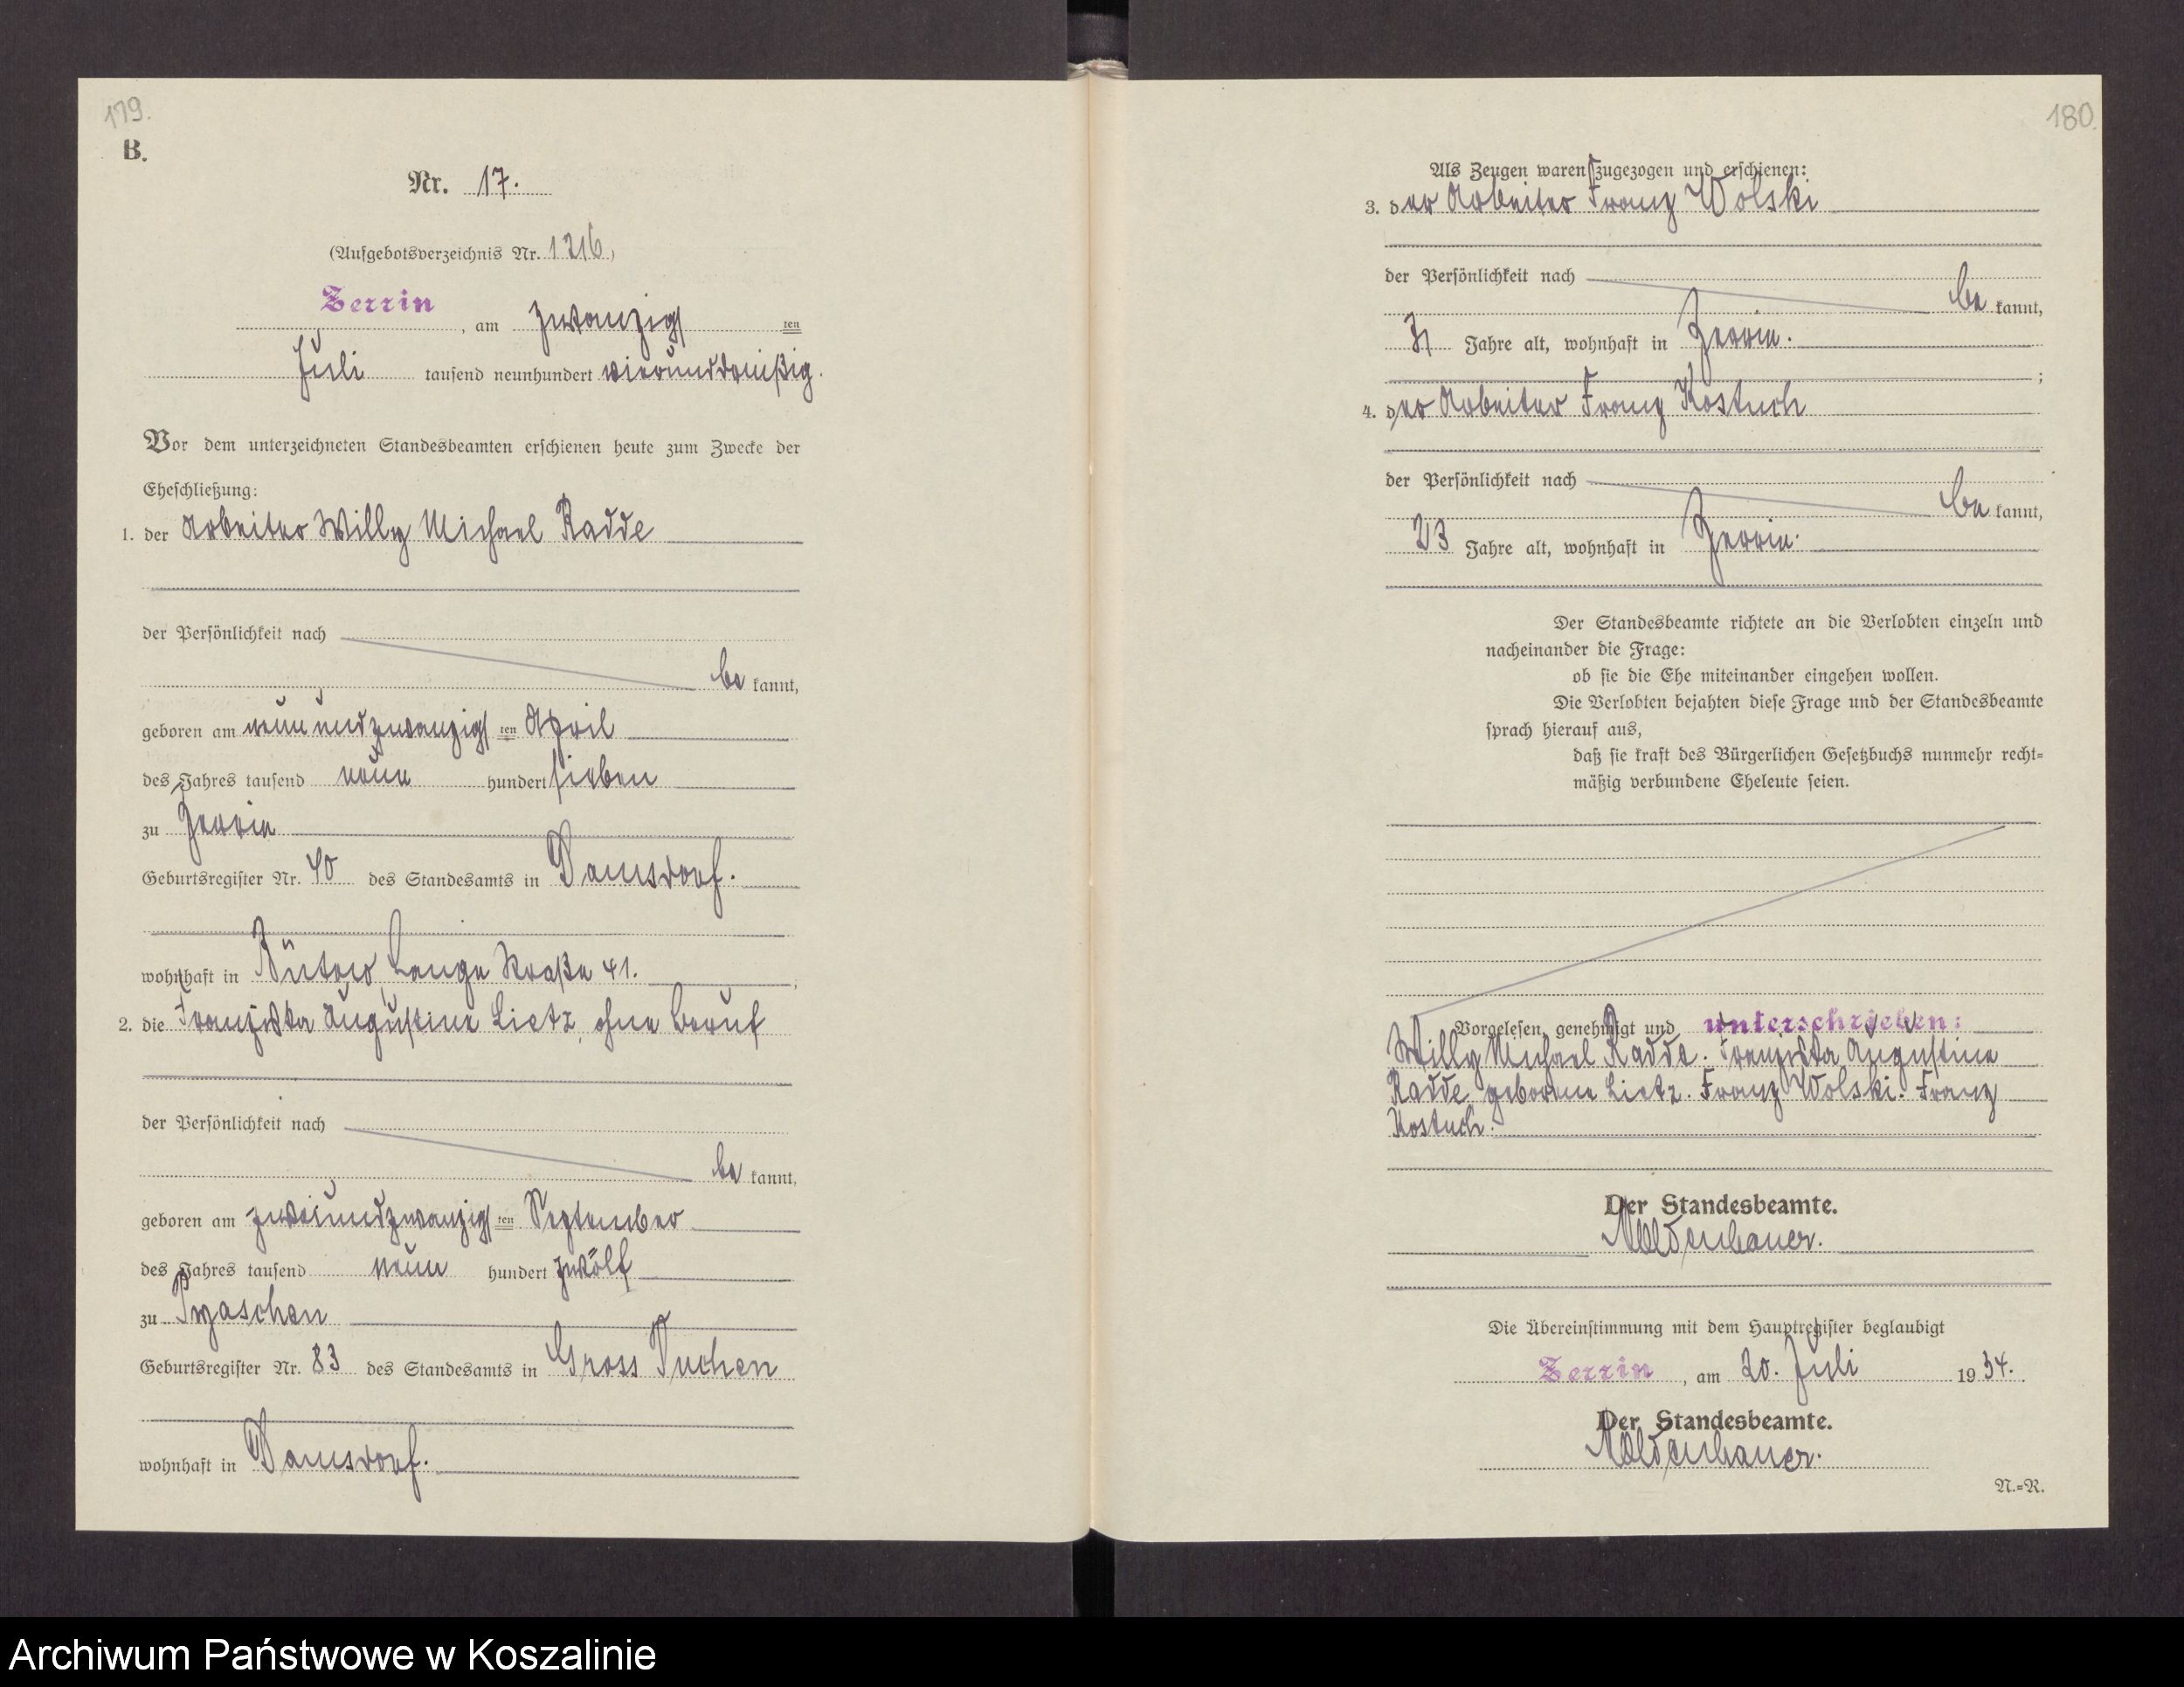 179.
B.
Nr. 17.
(Aufgebotsverzeichnis Nr. 1216)
Zerrin, am zwanzigsten
Juli tausend neunhundert vierunddreißig.
Vor dem unterzeichneten Standesbeamten erschienen heute zum Zwecke der
Eheschließung:
1. der Arbeiter Willy Michael Radde
der Persönlichkeit nach
be kannt,
geboren am neunundzwanzigsten April
des Jahres tausend neun hundert sieben
zu Zerrin
Geburtsregister Nr. 40 des Standesamts in Damsdorf.
wohnhaft in Bütow, Lange Straße 41.;
2. die Franziska Augustine Lietz, ohne Beruf
der Persönlichkeit nach
be kannt,
geboren am zweiundzwanzigsten September
des Jahres tausend neun hundert zwölf
zu Pyaschen
Geburtsregister Nr. 83 des Standesamts in Gross Tuchen
wohnhaft in Damsdorf.
180.
Als Zeugen waren zugezogen und erschienen:
3. der Arbeiter Franz Wolski
der Persönlichkeit nach
be kannt,
Jahre alt, wohnhaft in Zerrin.
;
4. der Arbeiter Franz Kostuch
der Persönlichkeit nach
be kannt,
23 Jahre alt, wohnhaft in Zerrin.
Der Standesbeamte richtete an die Verlobten einzeln und
nacheinander die Frage:
ob sie die Ehe miteinander eingehen wollen.
Die Verlobten bejahten diese Frage und der Standesbeamte
sprach hierauf aus,
daß sie kraft des Bürgerlichen Gesetzbuchs nunmehr recht=
mäßig verbundene Eheleute seien.
Vorgelesen, genehmigt und unterschrieben:
Willy Michael Radde. Franziska Augustine
Radde geborene Lietz. Franz Wolski. Franz
Kostuch.
Der Standesbeamte.
Moldenhauer.
Die Übereinstimmung mit dem Hauptregister beglaubigt
Zerrin, am 20. Juli 1934.
Der Standesbeamte.
Moldenhauer.
N.=R.
Archiwum Państwowe w Koszalinie